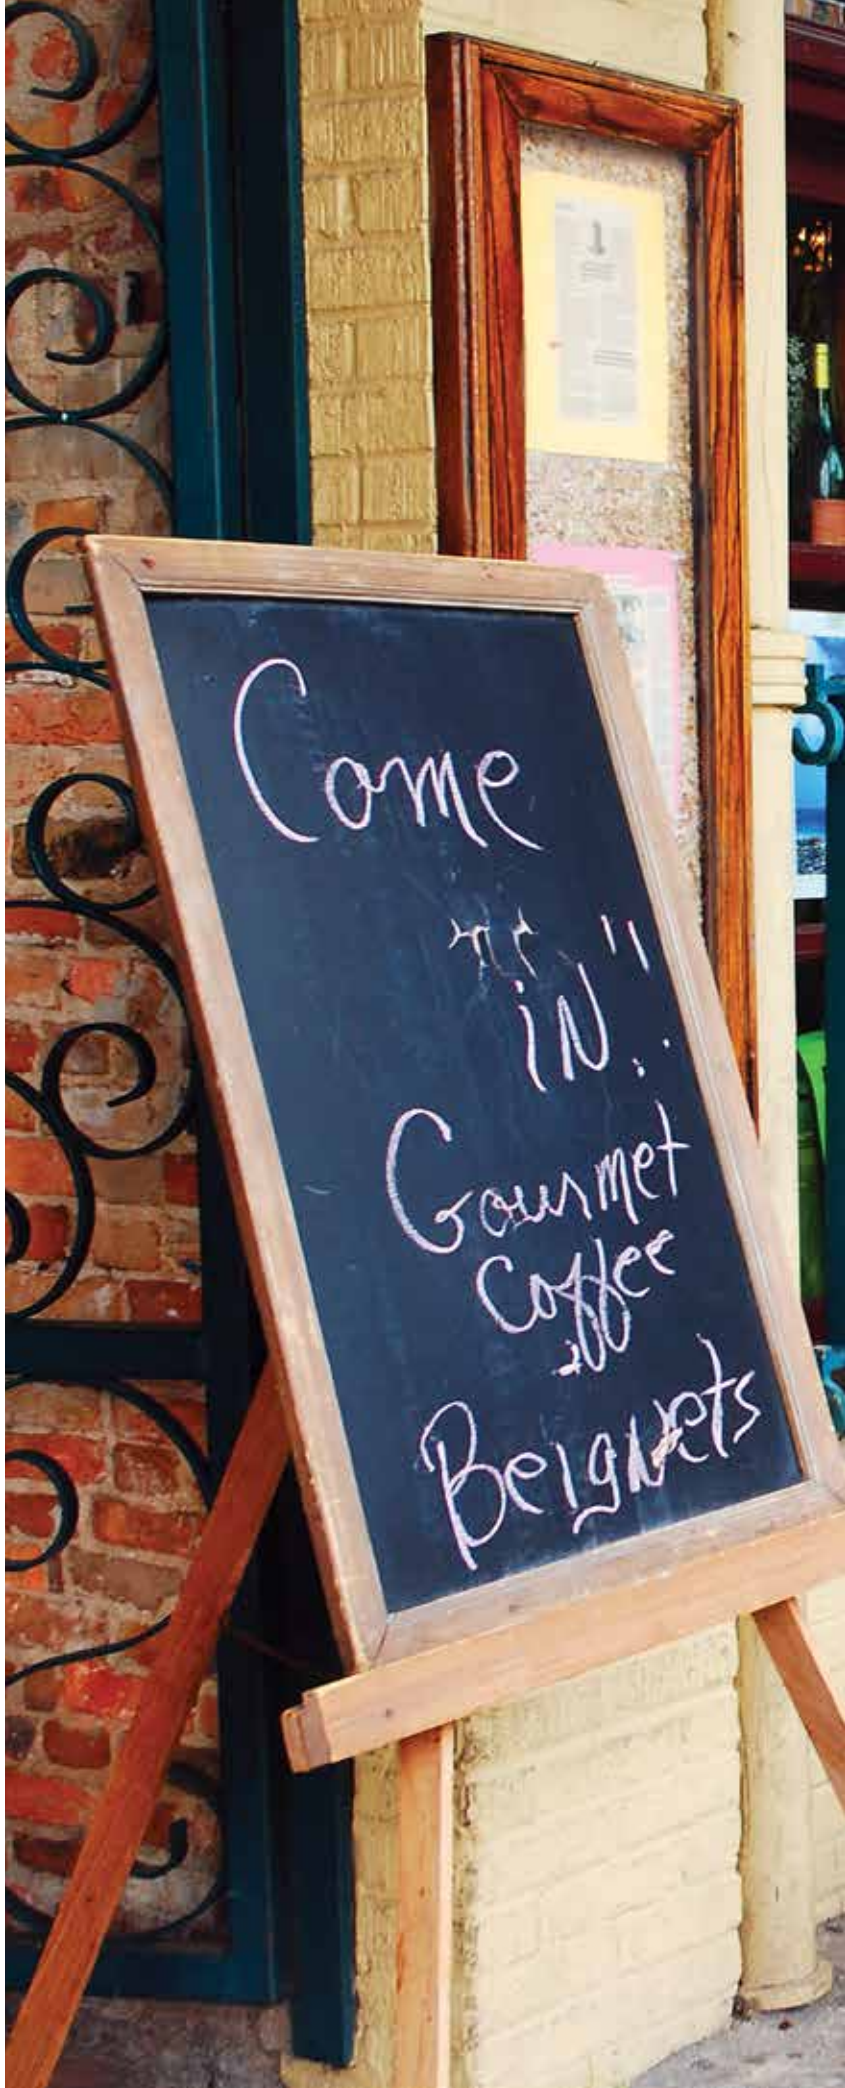 Come
iN!!
Gourmet
Coffee
Beignets